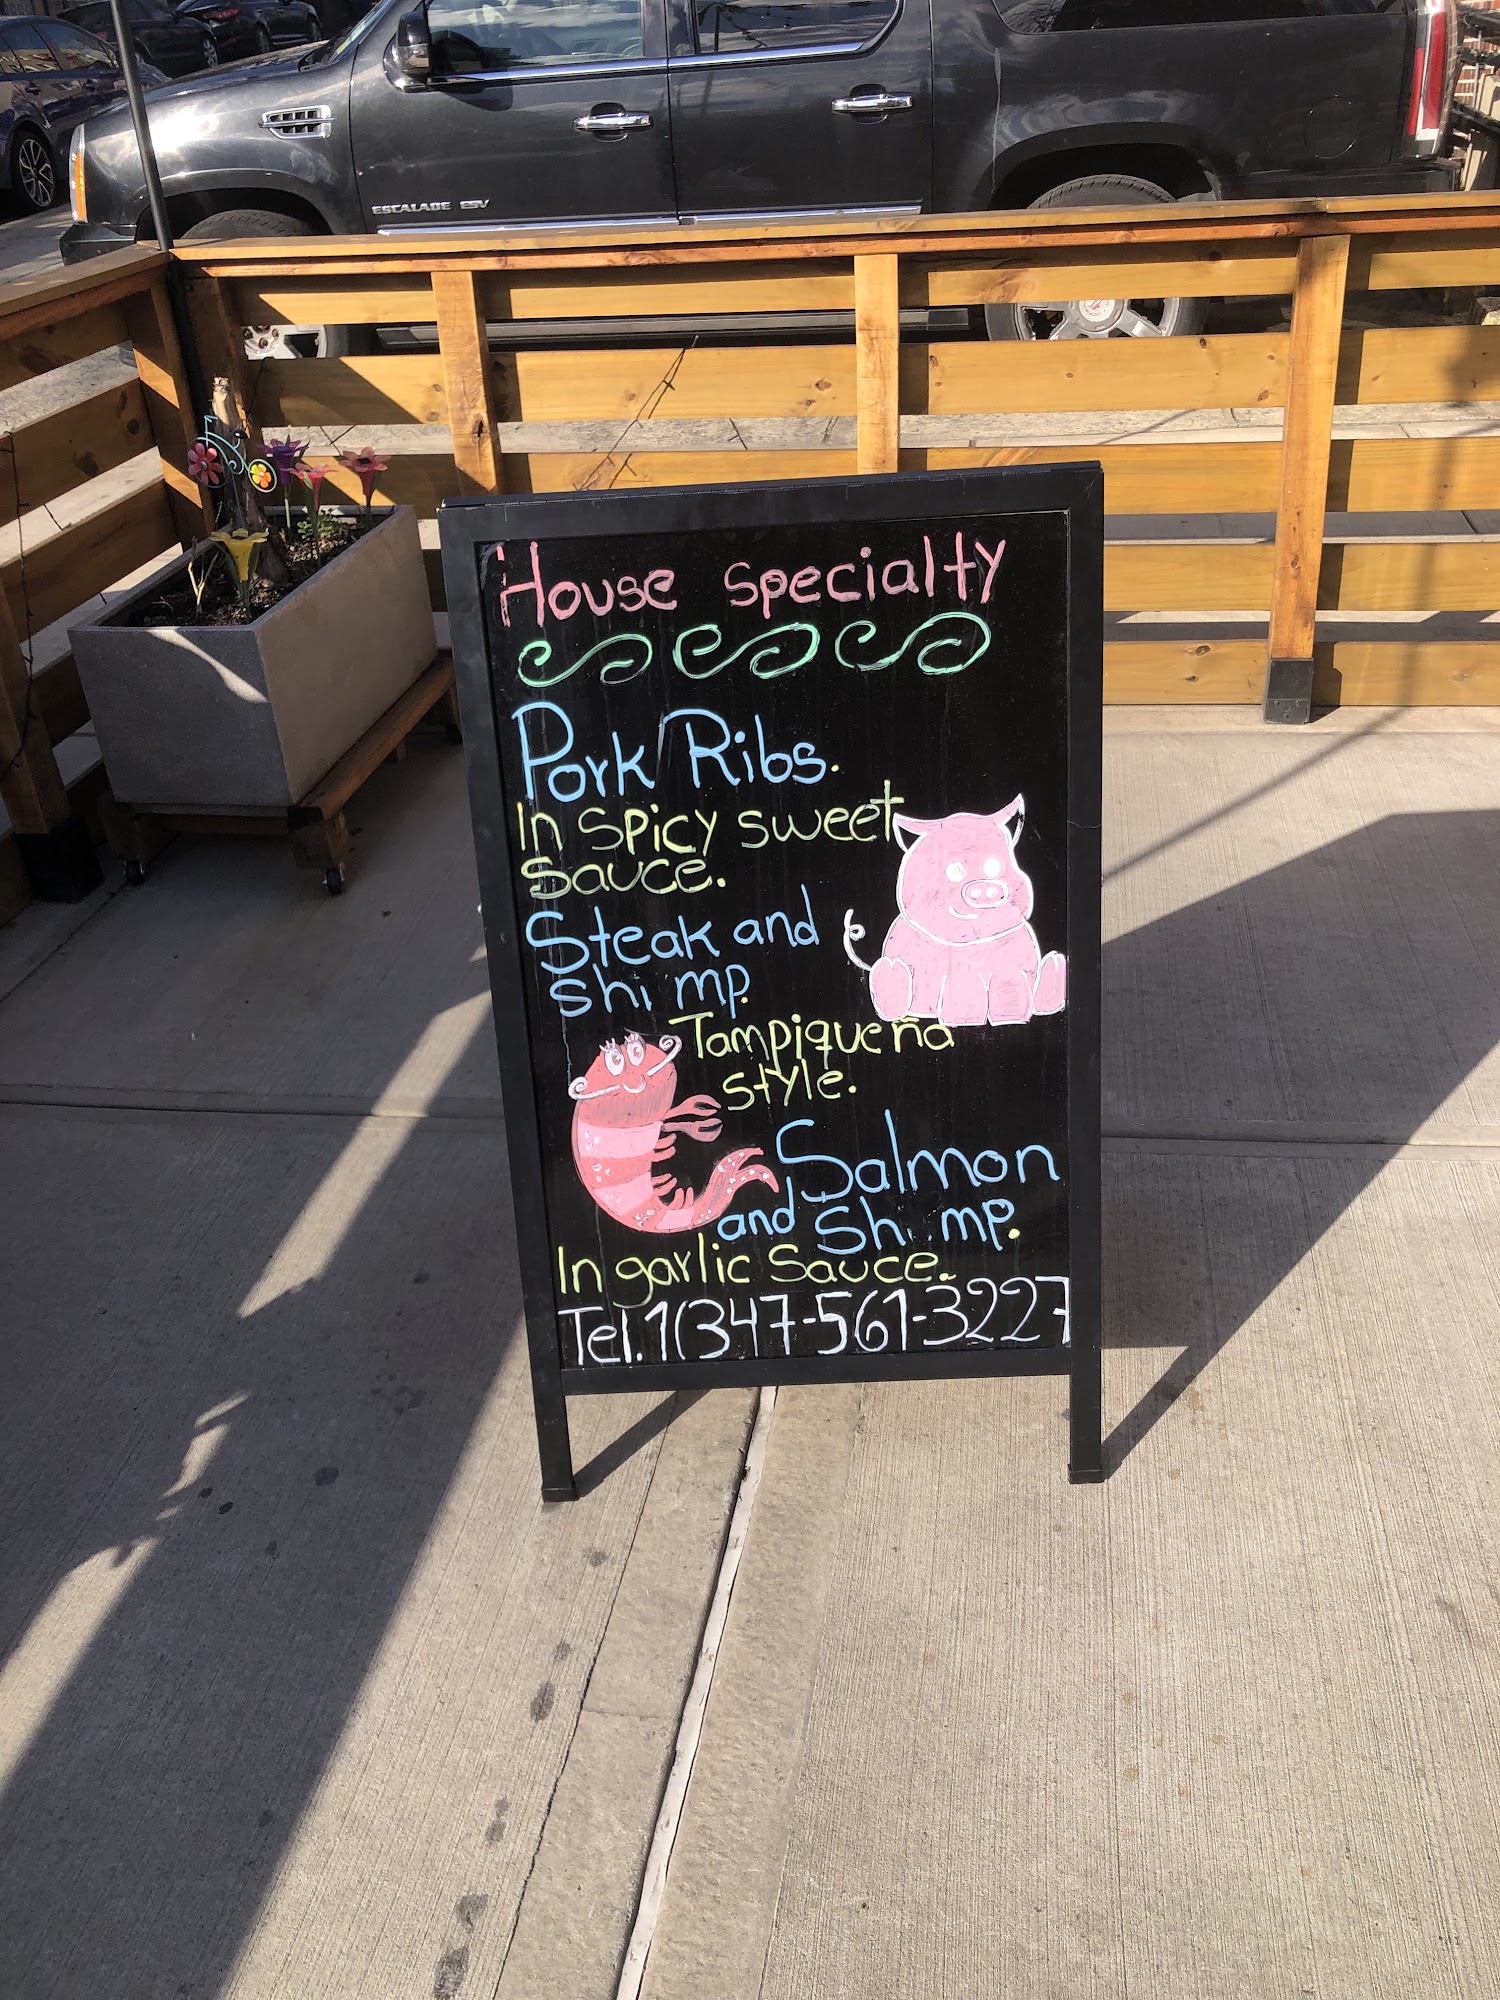 ESCALADE ESV
House specialty
Pork Ribs.
In spicy sweet
sauce.
Steak and
shi mp.
Tampiqueña
style.
Salmon
and Sh mp.
In garlic sauce.
Tel. 1(347-561-3227